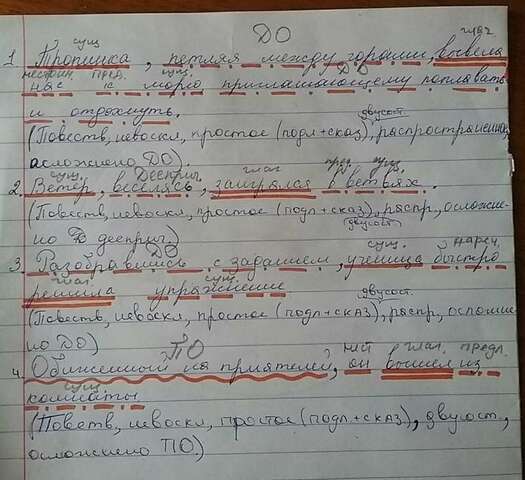 ДО
сущ глаг
1 Тропинка, петляя между горами, вывела
местоим. пред. сущ. ДО
нас к морю приглашающему поплавать
и отдохнуть.
двусост.
(Повеств, невоскл, простое (подл+сказ), распространенно,
осложнено ДО).
сущ. Дееприч. глаг пред сущ.
2. Ветер, веселясь, заигрался в ветвях.
(Повеств, невоскл, простое (подл+сказ), распр, осложне-
двусост.
но дееприч.)
ДО сущ. нареч.
3. Разобравшись с заданием, ученица быстро
глаг. сущ.
решила упражнение
двусост.
(Повеств, невоскл, простое (подл+сказ), распр, осложне
но ДО)
ПО мест глаг. предл.
4. Обиженный на приятелей, он вышел из
сущ
комнаты
(Повеств, невоскл, простое (подл+сказ), двусост.,
осложнено ПО)